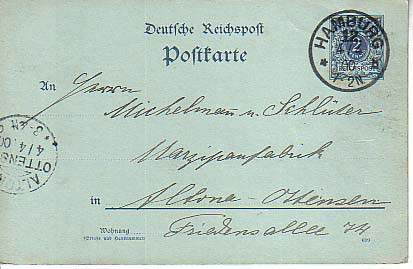 Deutsche Reichspost
Postkarte
HAMBURG
7-8N
An
Herren
Michelmann u. Schlüter
Marzipanfabrik
in Altona-Ottensen
Friedensallee 74
Wohnung
(Straße und Hausnummer)
ALTONA
OTTENSEN
4/4 00